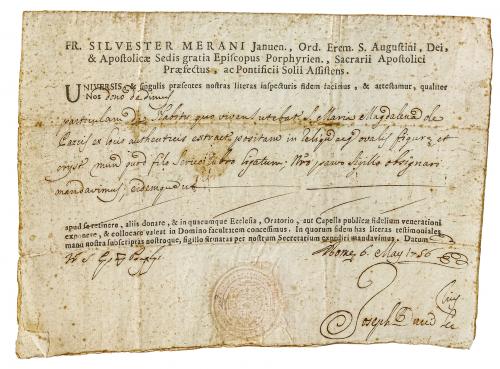 FR. SILVESTER MERANI Januen., Ord. Erem. S. Augustini, Dei,
& Apostolicæ Sedis gratia Episcopus Porphyrien., Sacrarii Apostolici
Præfectus, ac Pontificii Solii Assistens.
UNIVERSIS & singulis præsentes nostras literas inspecturis fidem facimus, & attestamur, qualiter
Nos dono dedimus
particulam de Habitu quo vivens utebat S. Maria Magdalena de
Pazzis ex locis authenticis extract positam in ovalis figuræ et
cryst mun filo serico rubro ligatum Nro parvo sigillo obsignari
mandavimus, eidemque ut
apud se retinere, aliis donare, & in quacumque Ecclesia, Oratorio, aut Capella publicæ fidelium venerationi
exponere, & collocare valeat in Domino facultatem concessimus. In quorum fidem has literas testimoniales
manu nostra subscriptas nostroque, sigillo firmatas per nostrum Secretarium expediri mandavimus. Datum
Romæ 6. May 1756
Joseph